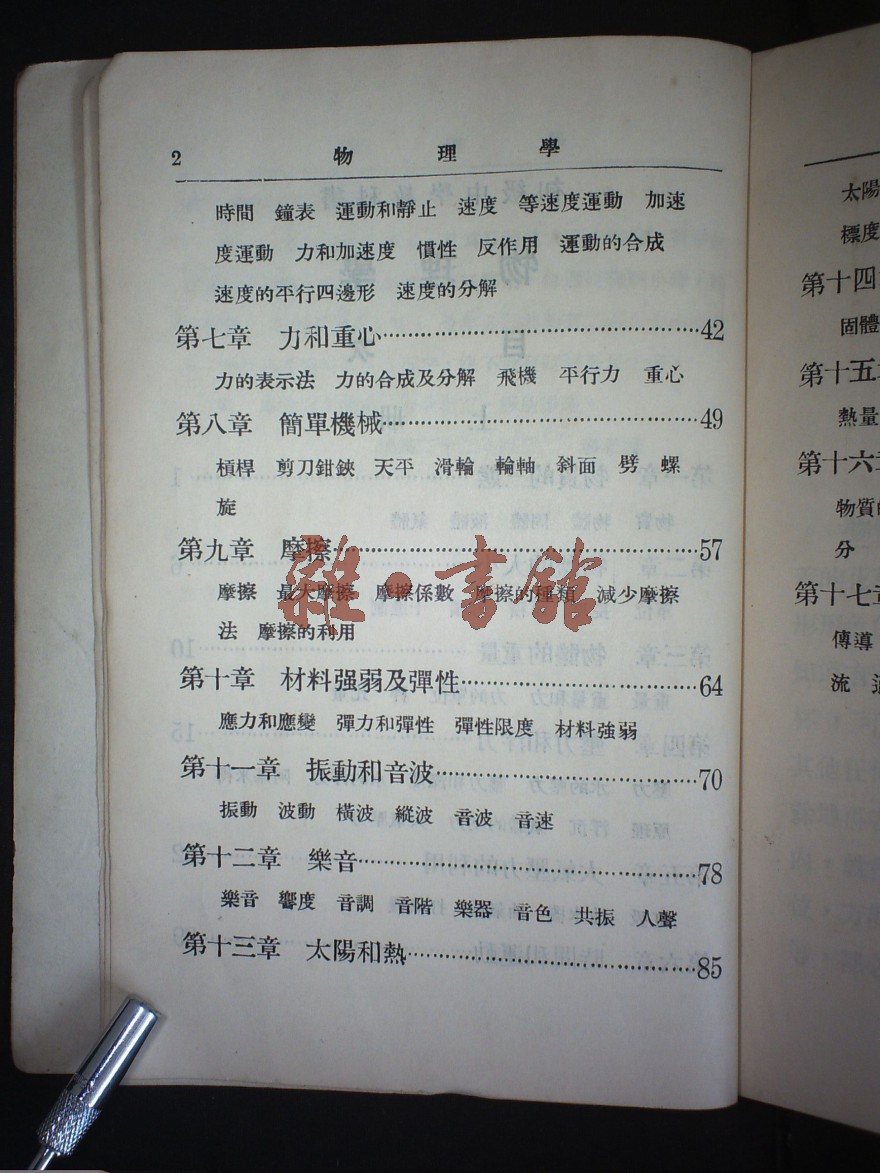 2 物理學
時間 鐘表 運動和靜止 速度 等速度運動 加速
度運動 力和加速度 慣性 反作用 運動的合成
速度的平行四邊形 速度的分解
第七章 力和重心……42
力的表示法 力的合成及分解 飛機 平行力 重心
第八章 簡單機械……49
槓桿 剪刀鉗鋏 天平 滑輪 輪軸 斜面 劈 螺
旋
第九章 摩擦……57
摩擦 最大摩擦 摩擦係數 摩擦的種類 減少摩擦
法 摩擦的利用
第十章 材料强弱及彈性……64
應力和應變 彈力和彈性 彈性限度 材料強弱
第十一章 振動和音波……70
振動 波動 橫波 縱波 音波 音速
第十二章 樂音……78
樂音 響度 音調 音階 樂器 音色 共振 人聲
第十三章 太陽和熱……85
雜·書館
太陽
標度
第十四
固體
第十五
熱量
第十六
物質
分
第十七
傳導
流